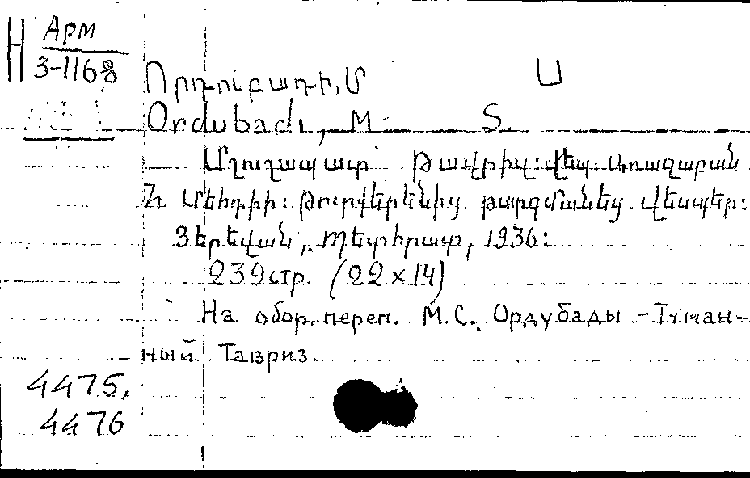 Н Арм
3-1168
Որդուբադի, Մ Ս
Ordubadi, M S
Մշուշապատ Թավրիզ: Վեպ. առաջաբան
Հ. Մեհդիի: Թուրքերենից թարգմանեց Վեսպեր:
Յերեվան, Պետհրատ, 1936:
239 стр. (22 x 14)
На обор. переп. М.С. Ордубады - Туман-
ный Тавриз.
4475,
4476